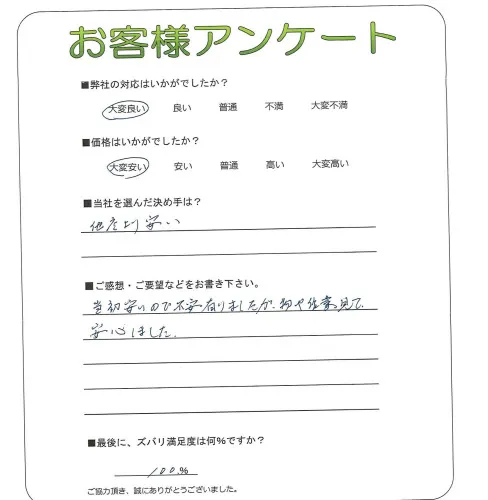 お客様アンケート
■弊社の対応はいかがでしたか？
大変良い 良い 普通 不満 大変不満
■価格はいかがでしたか？
大変安い 安い 普通 高い 大変高い
■当社を選んだ決め手は？
他店より安い
■ご感想・ご要望などをお書き下さい。
当初安いので不安有りましたが、物や仕事見て、
安心しました。
■最後に、ズバリ満足度は何％ですか？
100%
ご協力頂き、誠にありがとうございました。